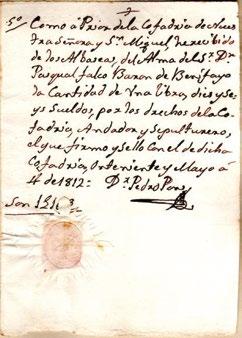 5º/ Como á Prior de la Cofadria de Nues
tra Señora y Sn. Miguel he recibido
de los Albaseas, del Alma del Sr. Dn.
Pasqual falco Baron de Benifayo
la Cantidad de Vna libra, dies y se
ys Sueldos, por los drechos de la Co
fadria, Andador y Sepulturero,
el que firmo y Sello Con el de dicha
Cofadria, Onteniente y Mayo á
4 de 1812=
Dn. Pedro Pons
Son 1£16